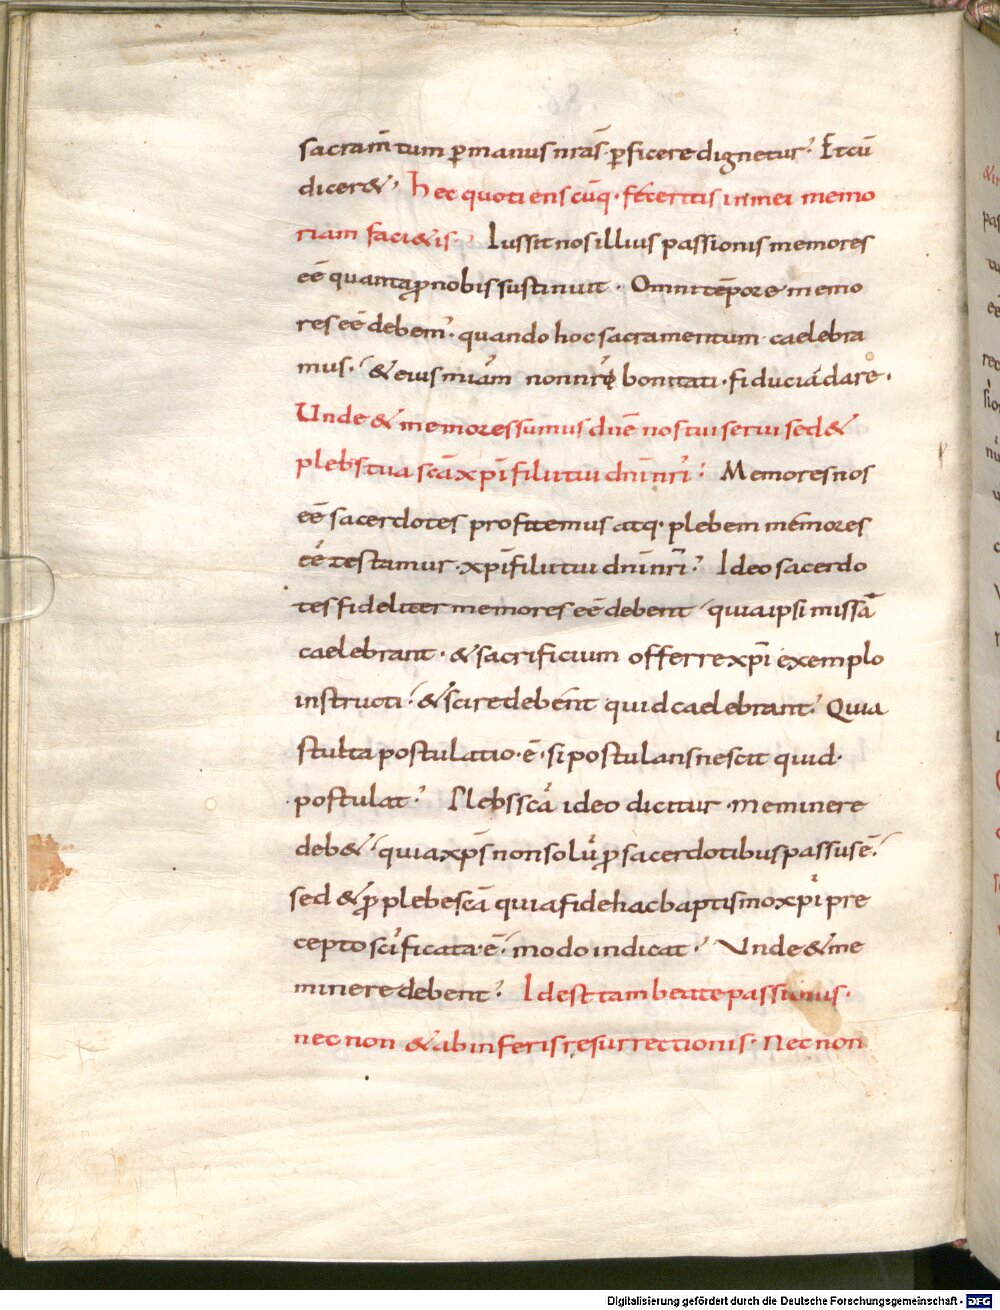 sacram̄tum ꝑmanus nr̄as ꝑficere dignetur. Et cū
dicer&. Hec quotienscūq· feceritis in mei memo
riam faci&is. Iussit nos illius passionis memores
eē quanta ꝓ nobis sustinuit. Omni tēpore memo
res eē debem᾽. quando hoc sacramentum caelebra
mus. & eius miām non nrę bonitati· fiduciā dare.
Unde & memores sumus dnē nos tui serui sed &
plebs tua scā xp̄i filii tui dnī nrī. Memores nos
eē sacerdotes profitemus atq· plebem memores
eē testamur xp̄i filii tui dnī nrī. Ideo sacerdo
tes fideliter memores eē debent quia ipsi missā
caelebrant· & sacrificium offerre xp̄i exemplo
instructi & scire debent quid caelebrant. Quia
stulta postulatio·ē· si postulans nescit quid·
postulat. Plebs scā ideo dicitur meminere
deb& quia xp̄s non solū ꝓ sacerdotibus passus ē.
sed & ꝓ plebe scā quia fide hac baptismo xp̄i pre
cepto scīficata·ē· modo indicat. Unde & me
minere debent. Id est tam beate passionis·
nec non & ab inferis resurrectionis. Nec non
Digitalisierung gefördert durch die Deutsche Forschungsgemeinschaft - DFG